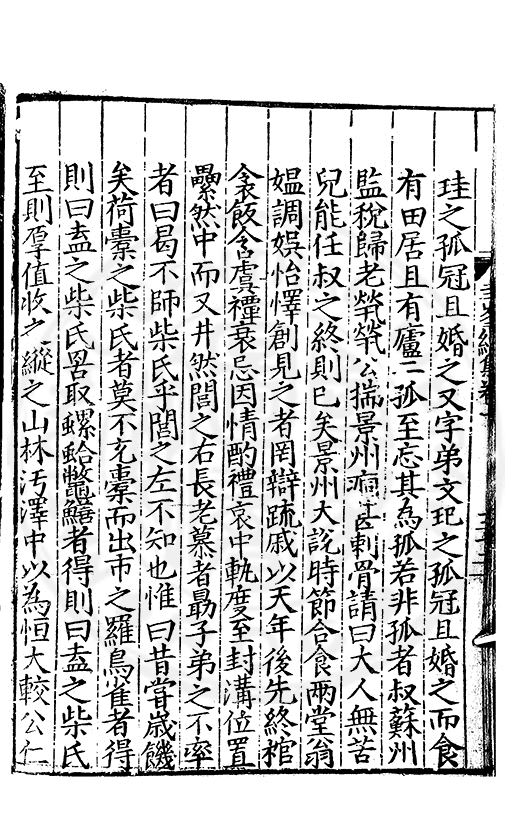 珪之孤冠且婚之又字弟文玘之孤冠且婚之而食
有田居且有廬二孤至忘其為孤若非孤者叔蘇州
監稅歸老煢煢公揣景州痌甚刺骨請曰大人無苦
兒能任叔之終則已矣景州大說時節合食兩堂翁
媪調娛怡懌創見之者罔辯疏戚以天年後先終棺
衾飯含虞禫衰忌因情酌禮哀中軌度至封溝位置
纍然中而又井然閭之右長老慕者勗子弟之不率
者曰曷不師柴氏乎閭之左不知也惟曰昔嘗歲饑
矣荷橐之柴氏者莫不充橐而出市之羅鳥雀者得
則曰盍之柴氏罟取螺蛤鱉鱔者得則曰盍之柴氏
至則厚值收之縱之山林汚澤中以為恒大較公仁